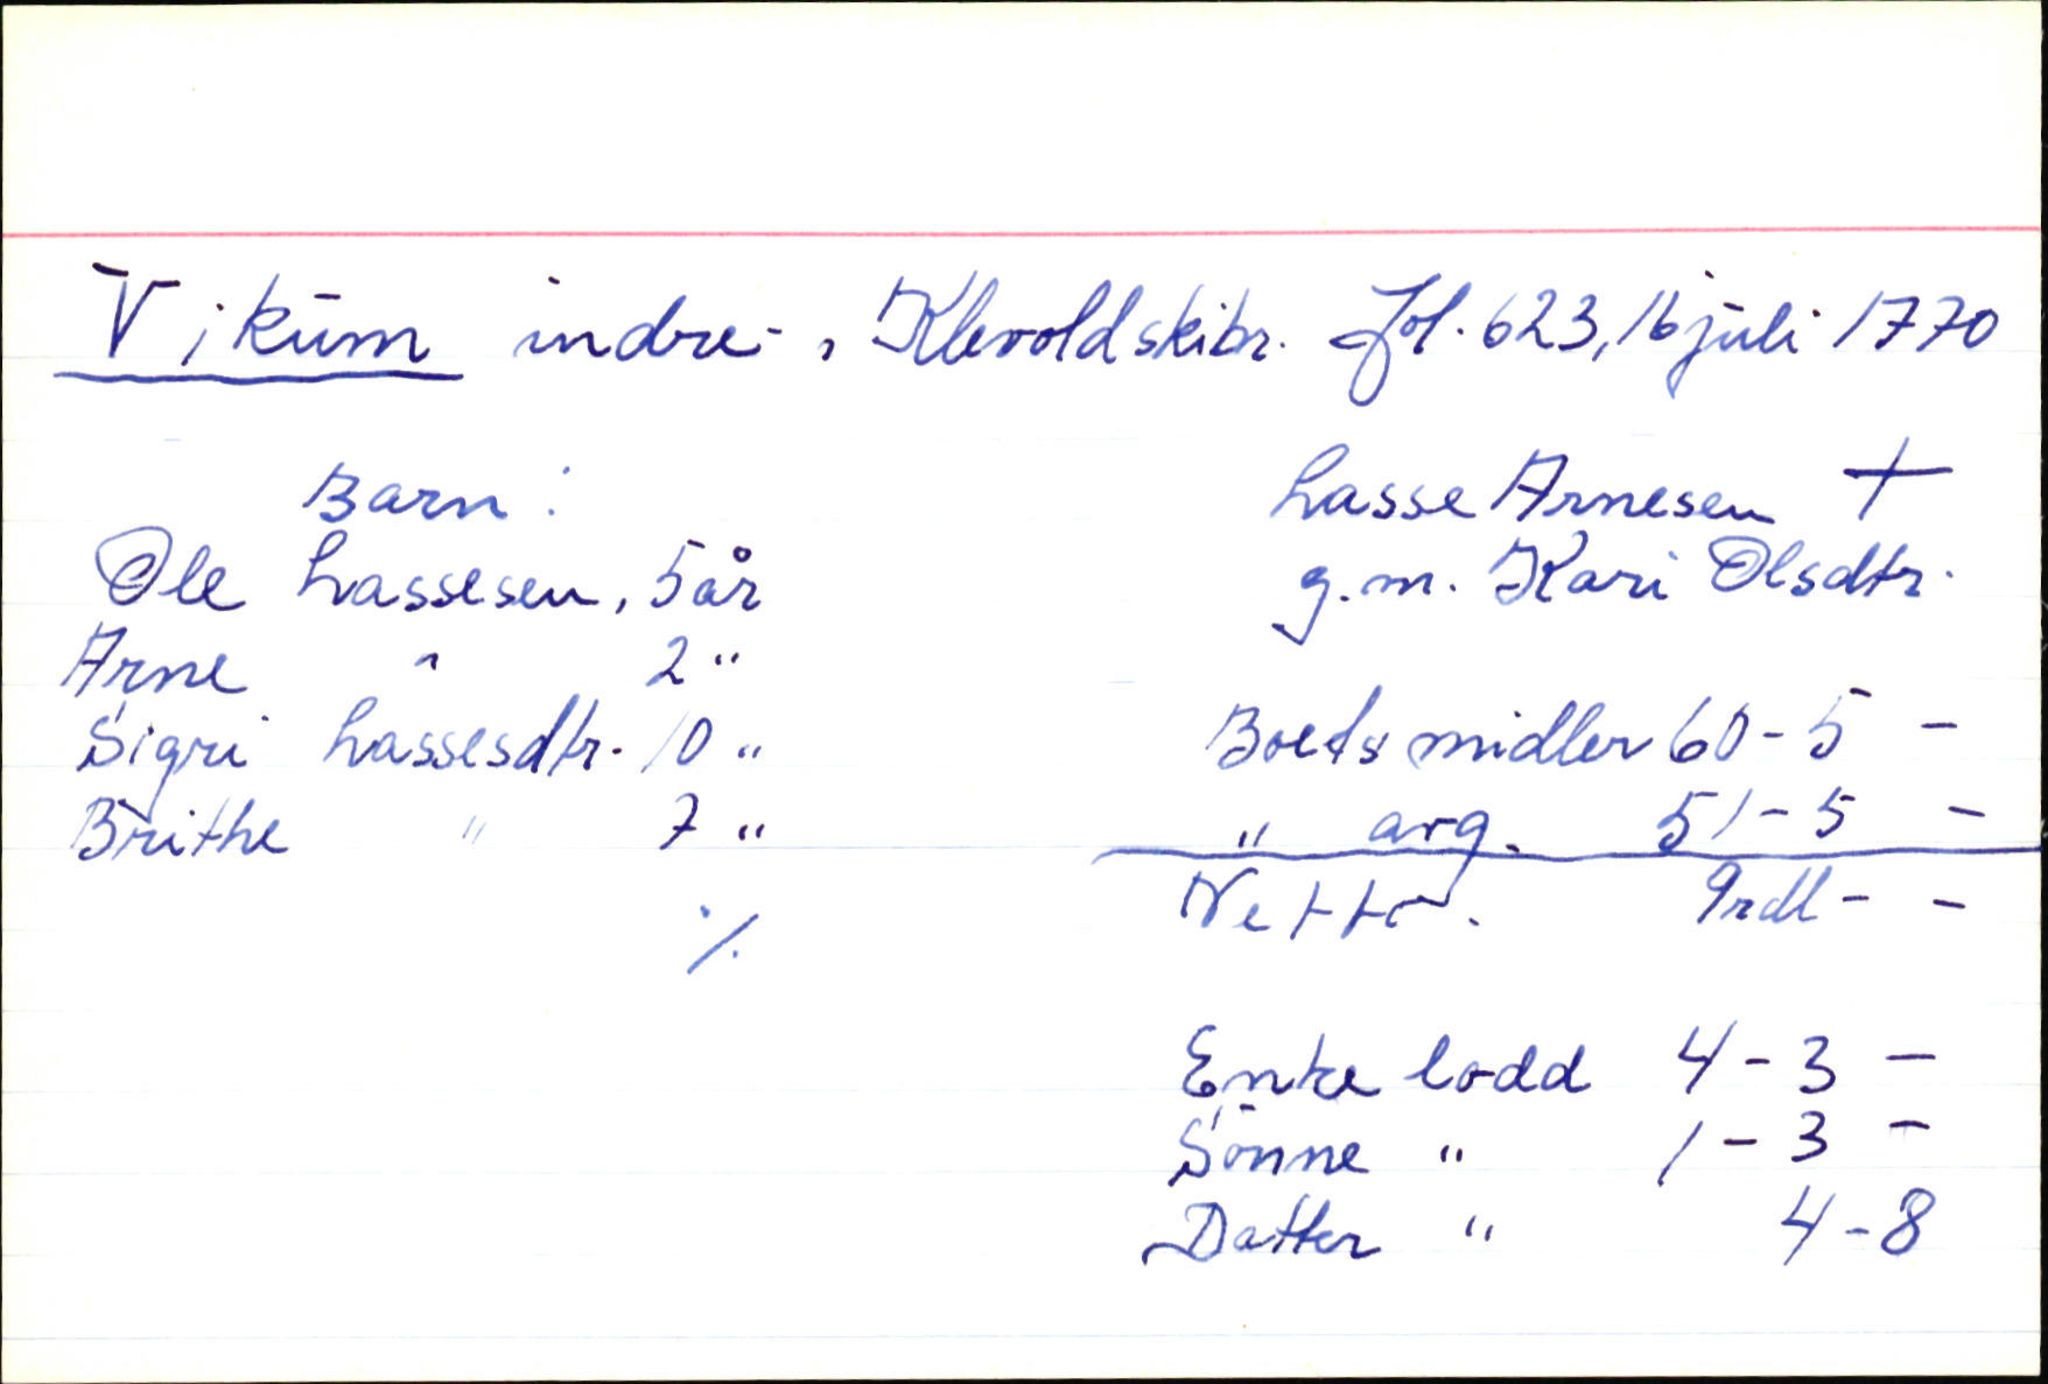 Vikum indre -, Klevold skibr. fol. 623, 16 juli 1770
Barn:
Ole Lassesen, 5 år
Arne " 2 "
Sigri Lassesdtr. 10 "
Brithe " 7 "
./.
Lasse Arnesen +
g.m. Kari Olsdtr.
Boets midler 60 - 5 -
" arg. 51 - 5 -
Netto. 9 rdl - -
Enke lodd 4 - 3 -
Sønne " 1 - 3 -
Datter " 4 - 8